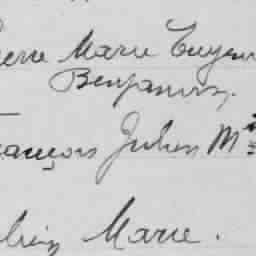 Pierre Marie Eugène
Benjamin.
François Julien M
Marie.